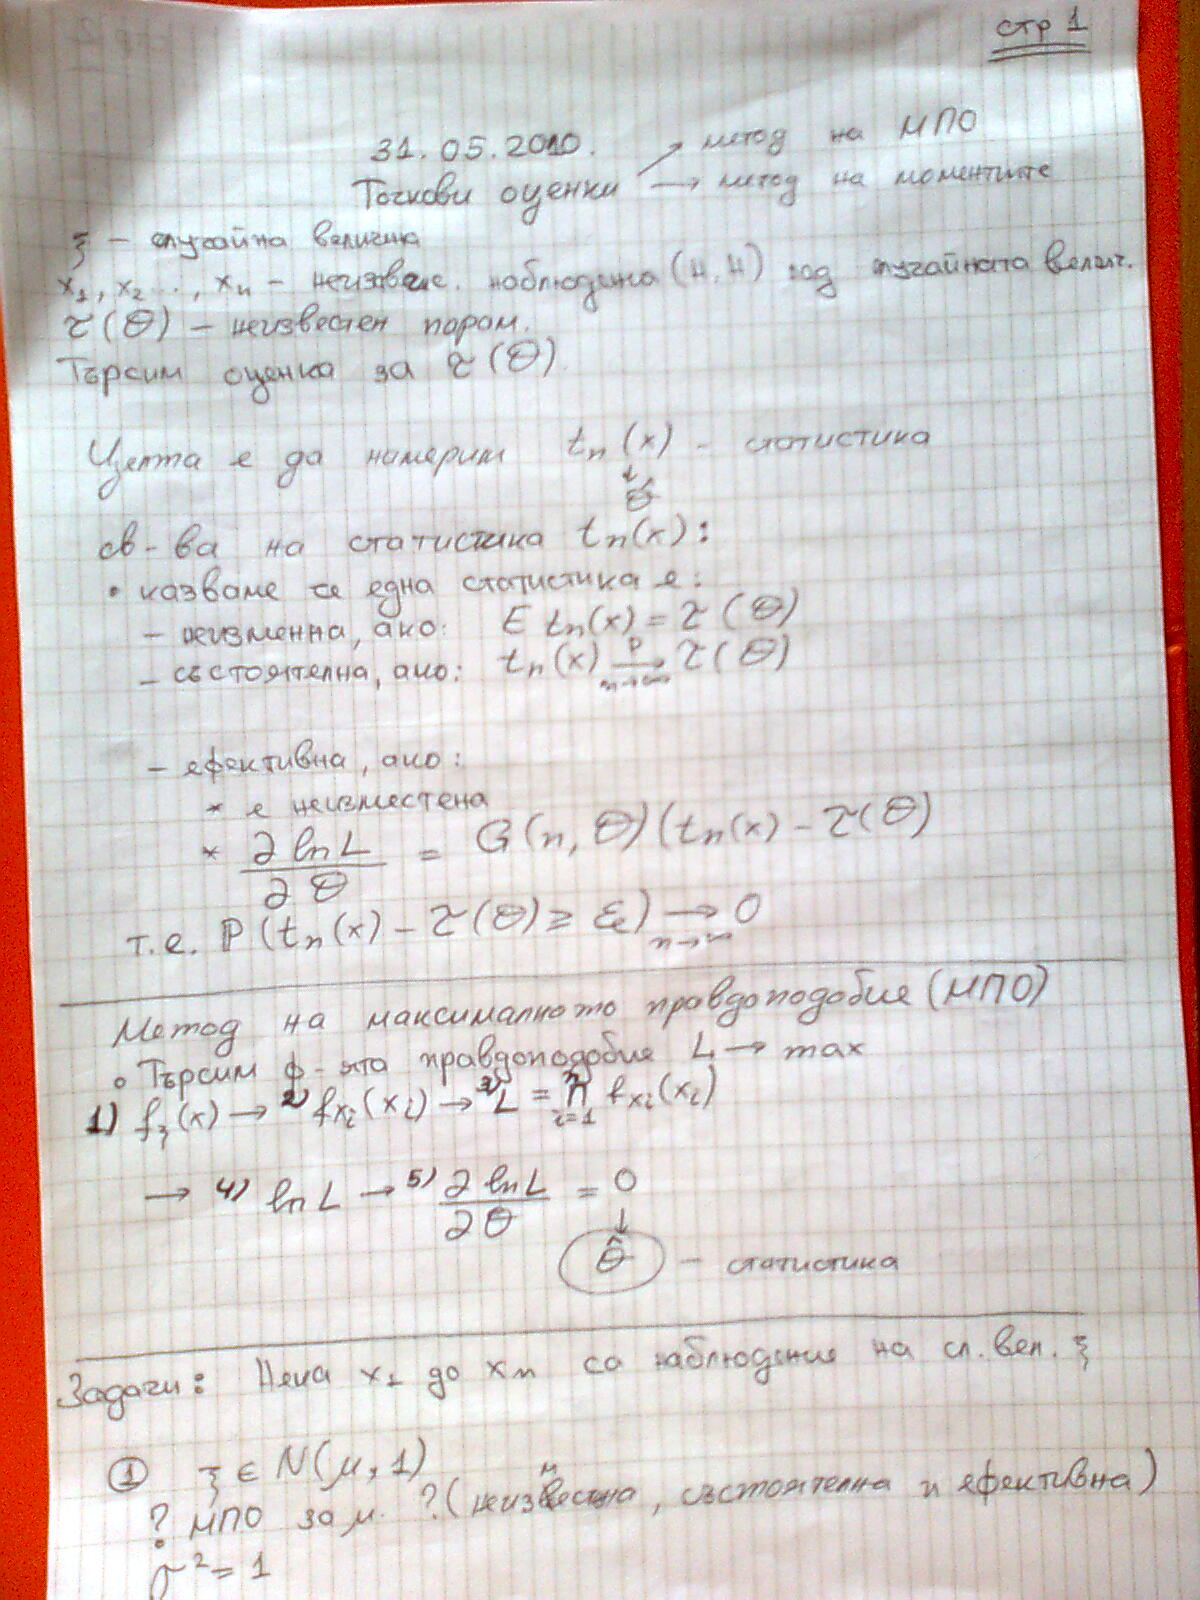 стр 1
31.05.2010.
Точкови оценки → метод на МПО
→ метод на моментите
ξ – случайна величина
x₁, x₂ ..., xₙ – наблюдения (н.н) над случайната велич.
τ(θ) – неизвестен парам.
Търсим оценка за τ(θ).
Целта е да намерим tₙ(x) – статистика
↓
θ̂
св-ва на статистика tₙ(x):
• казваме че една статистика е:
– неизменна, ако: E tₙ(x) = τ(θ)
– състоятелна, ако: tₙ(x) →ᴾ n→∞ τ(θ)
– ефективна, ако:
* е неизместена
* ∂ ln L / ∂ θ = G(n, θ)(tₙ(x) – τ(θ)
т.е. P(tₙ(x) – τ(θ) ≥ ε) → n→∞ 0
Метод на максималното правдоподобие (МПО)
• Търсим ф-ята правдоподобие L → max
1) f_ξ(x) → 2) f_{xi}(xᵢ) → 3) L = ∏ⁿ_{i=1} f_{xi}(xᵢ)
→ 4) ln L → 5) ∂ ln L / ∂ θ = 0
↓
θ̂ – статистика
Задачи: Нека x₁ до xₙ са наблюдения на сл. вел. ξ
① ξ ∈ N(μ, 1)
? МПО за μ. ? (, състоятелна и ефективна)
σ² = 1